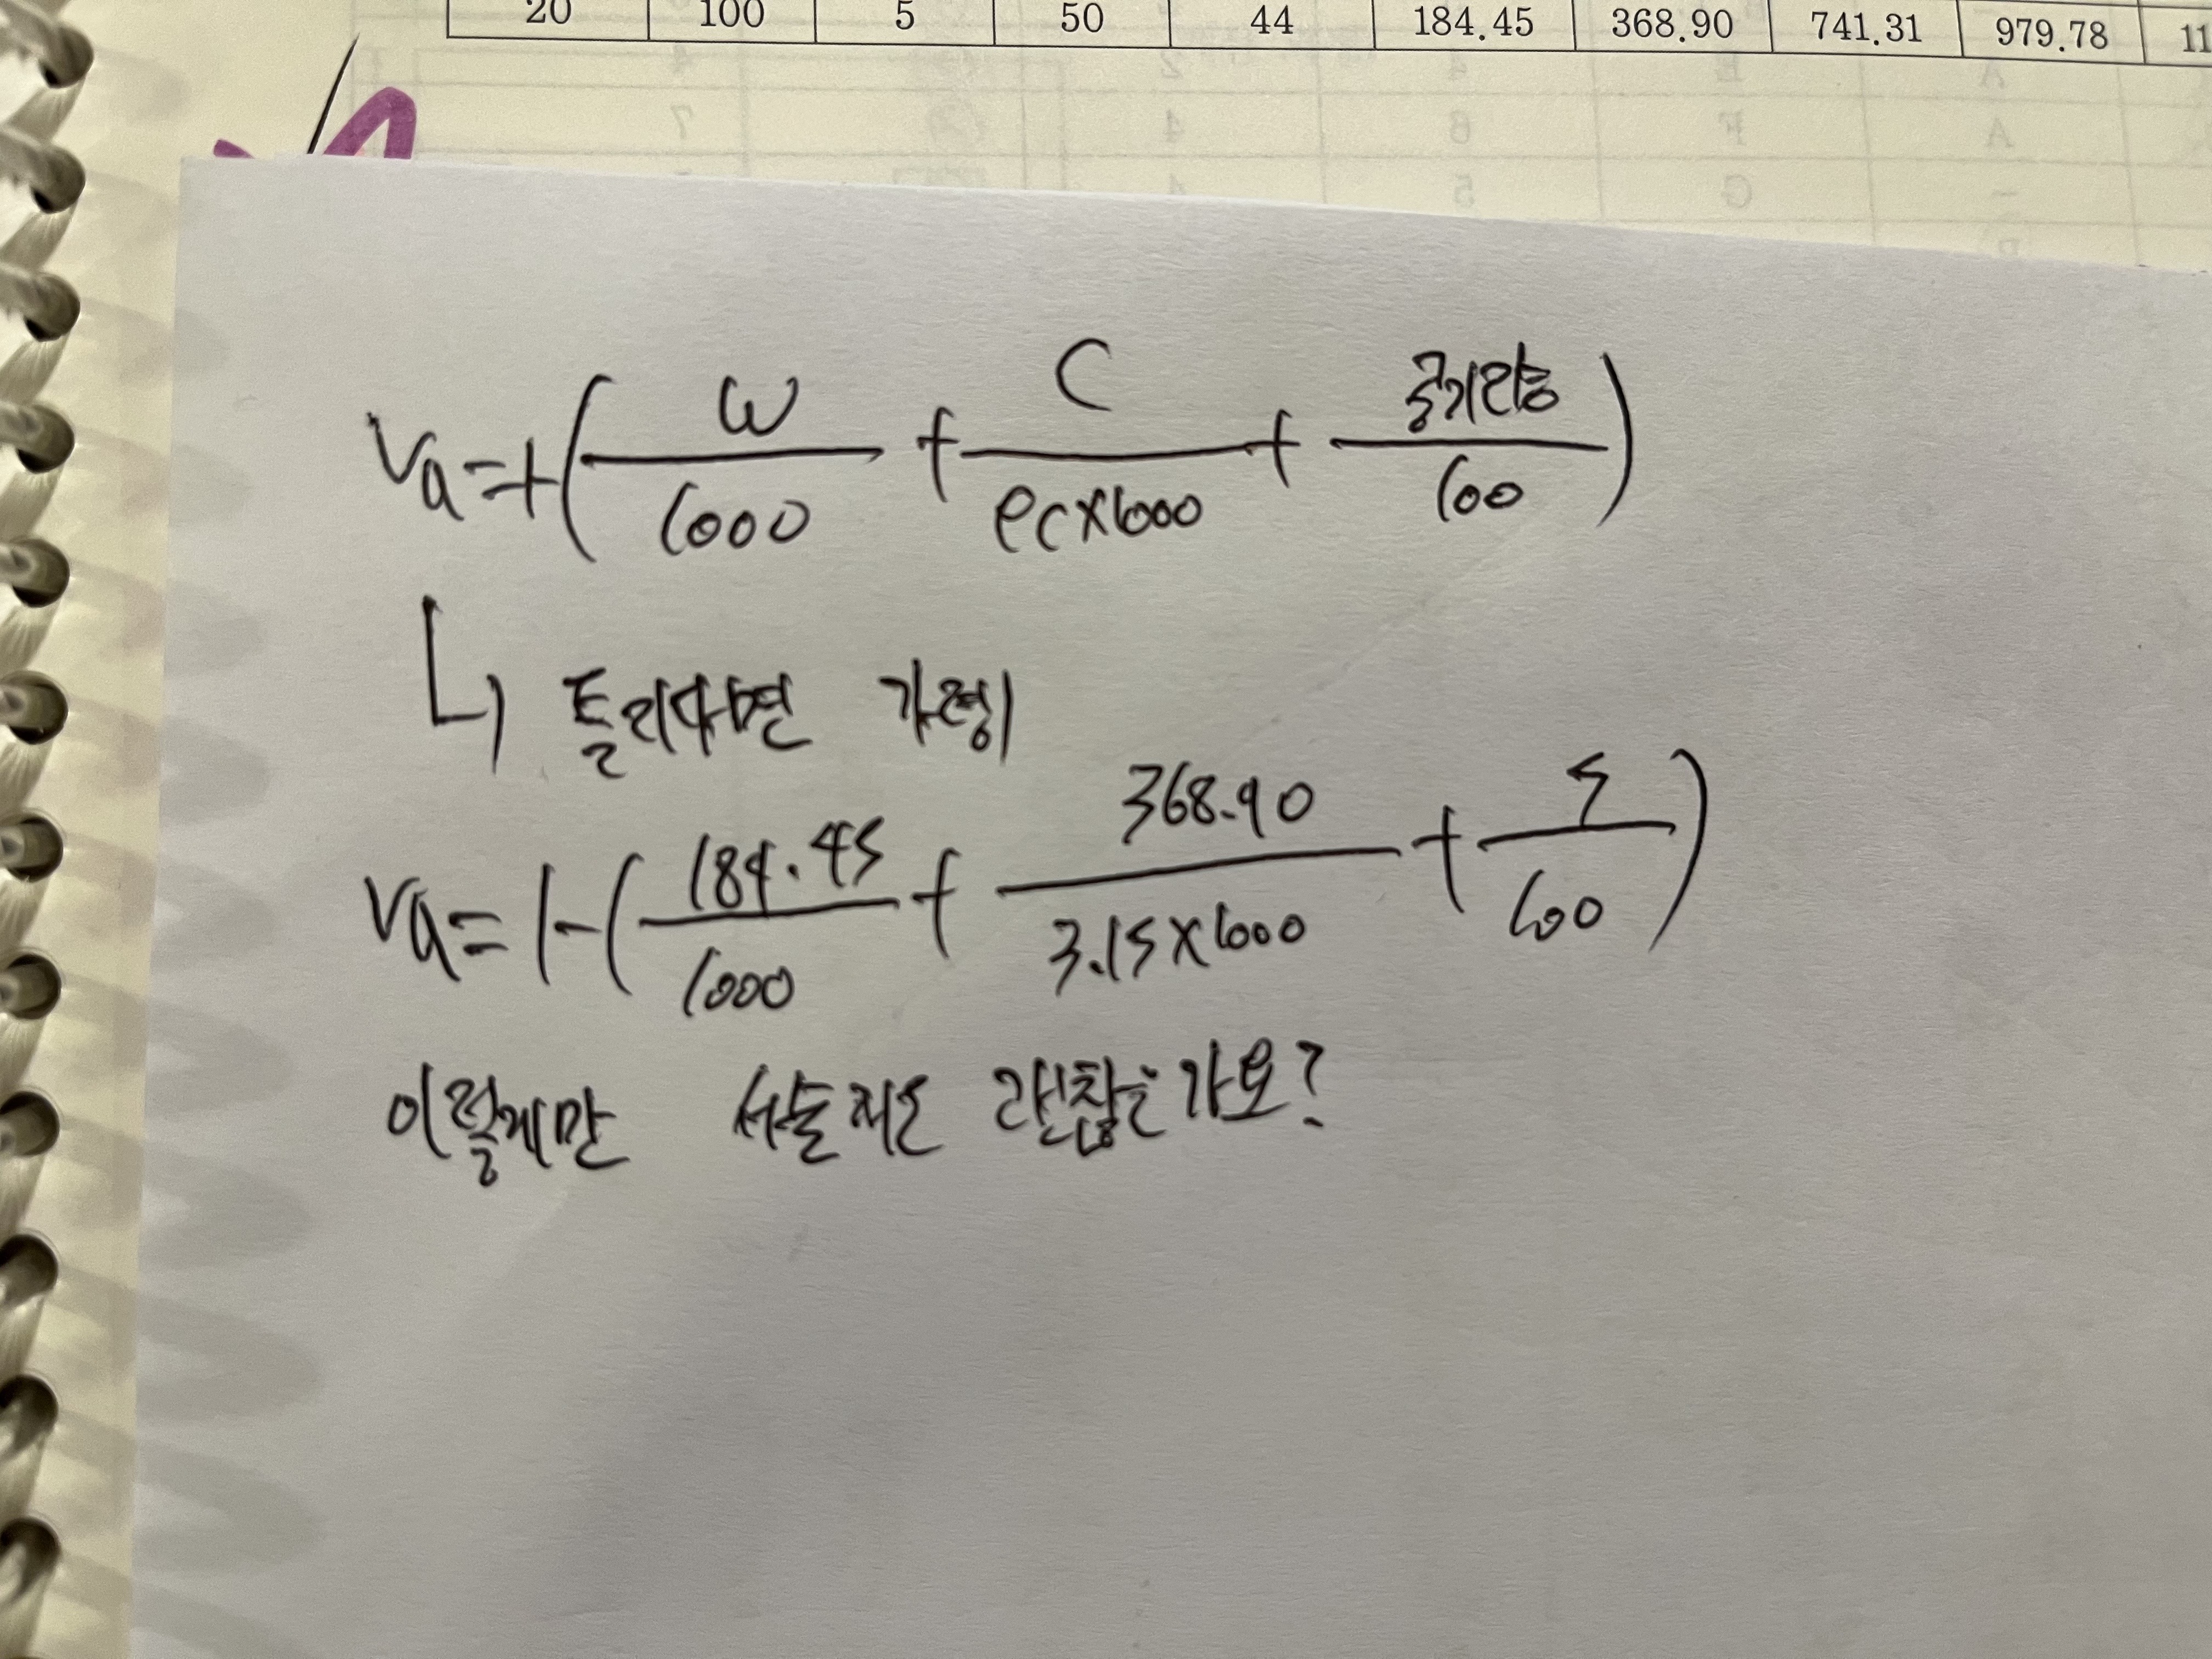 20 100 5 50 44 184.45 368.90 741.31 979.78 11
A E 4 2 4
A F 8 4 7
G 5 4
Va=1-(W/1000 + C/ρc×1000 + 공기량/100)
↳ 틀리다면 가령
Va=1-(184.45/1000 + 368.90/3.15×1000 + 5/100)
이렇게만 서술적은 괜찮은가요?